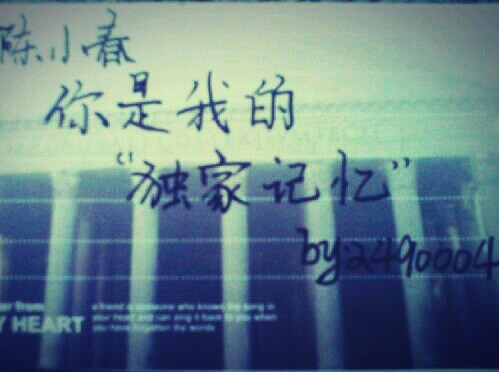 陈小春
你是我的
“独家记忆”
by:2490004
er from
Y HEART
a friend is someone who knows the song in
your heart and can sing it back to you when
you have forgotten the words